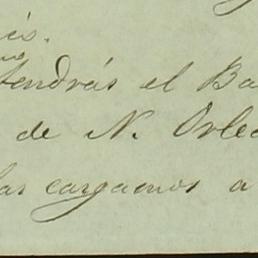 és.
tendrás el Ba
de N. Orle
las cargamos a